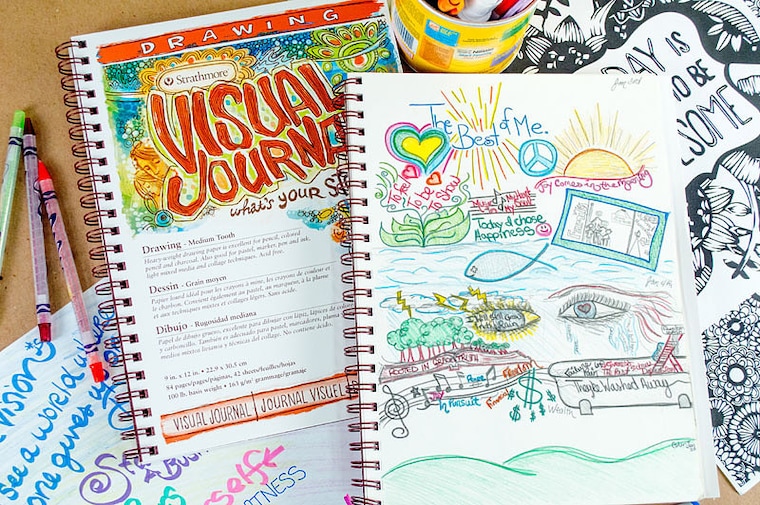 DRAWING
Strathmore
VISUAL
JOURNAL
what's YOUR
Drawing - Medium Tooth
Heavy-weight drawing paper is excellent for pencil, colored
pencil and charcoal. Also good for pastel, marker, pen and ink,
light mixed media and collage techniques. Acid free.
Dessin - Grain moyen
Papier lourd idéal pour les crayons à mine, les crayons de couleur et
le charbon. Convient également au pastel, au marqueur, à la plume
et aux techniques mixtes et collages légers. Sans acide.
Dibujo - Rugosidad mediana
Papel de dibujo grueso, excelente para dibujar con lápiz, lápices de color
y carboncillo. También es adecuado para pastel, marcadores, pluma
medios mixtos livianos y técnicas del collage. No contiene ácido.
9 in. x 12 in. • 22.9 x 30.5 cm
84 pages/pages/páginas, 42 sheets/feuilles/hojas
100 lb. basis weight • 163 g/m² grammage/gramaje
VISUAL JOURNAL
JOURNAL VISUEL
The
Best of Me.
To Feel
To Be
To Be
To Show
Joy Comes in the Morning
Today I chose
Happiness
ROOTED IN
Peace
Joy
In Pursuit
Freedom
Financial
Wealth
They're Washed Away
AY IS
TO BE
SOME
vision
see a world
one gives